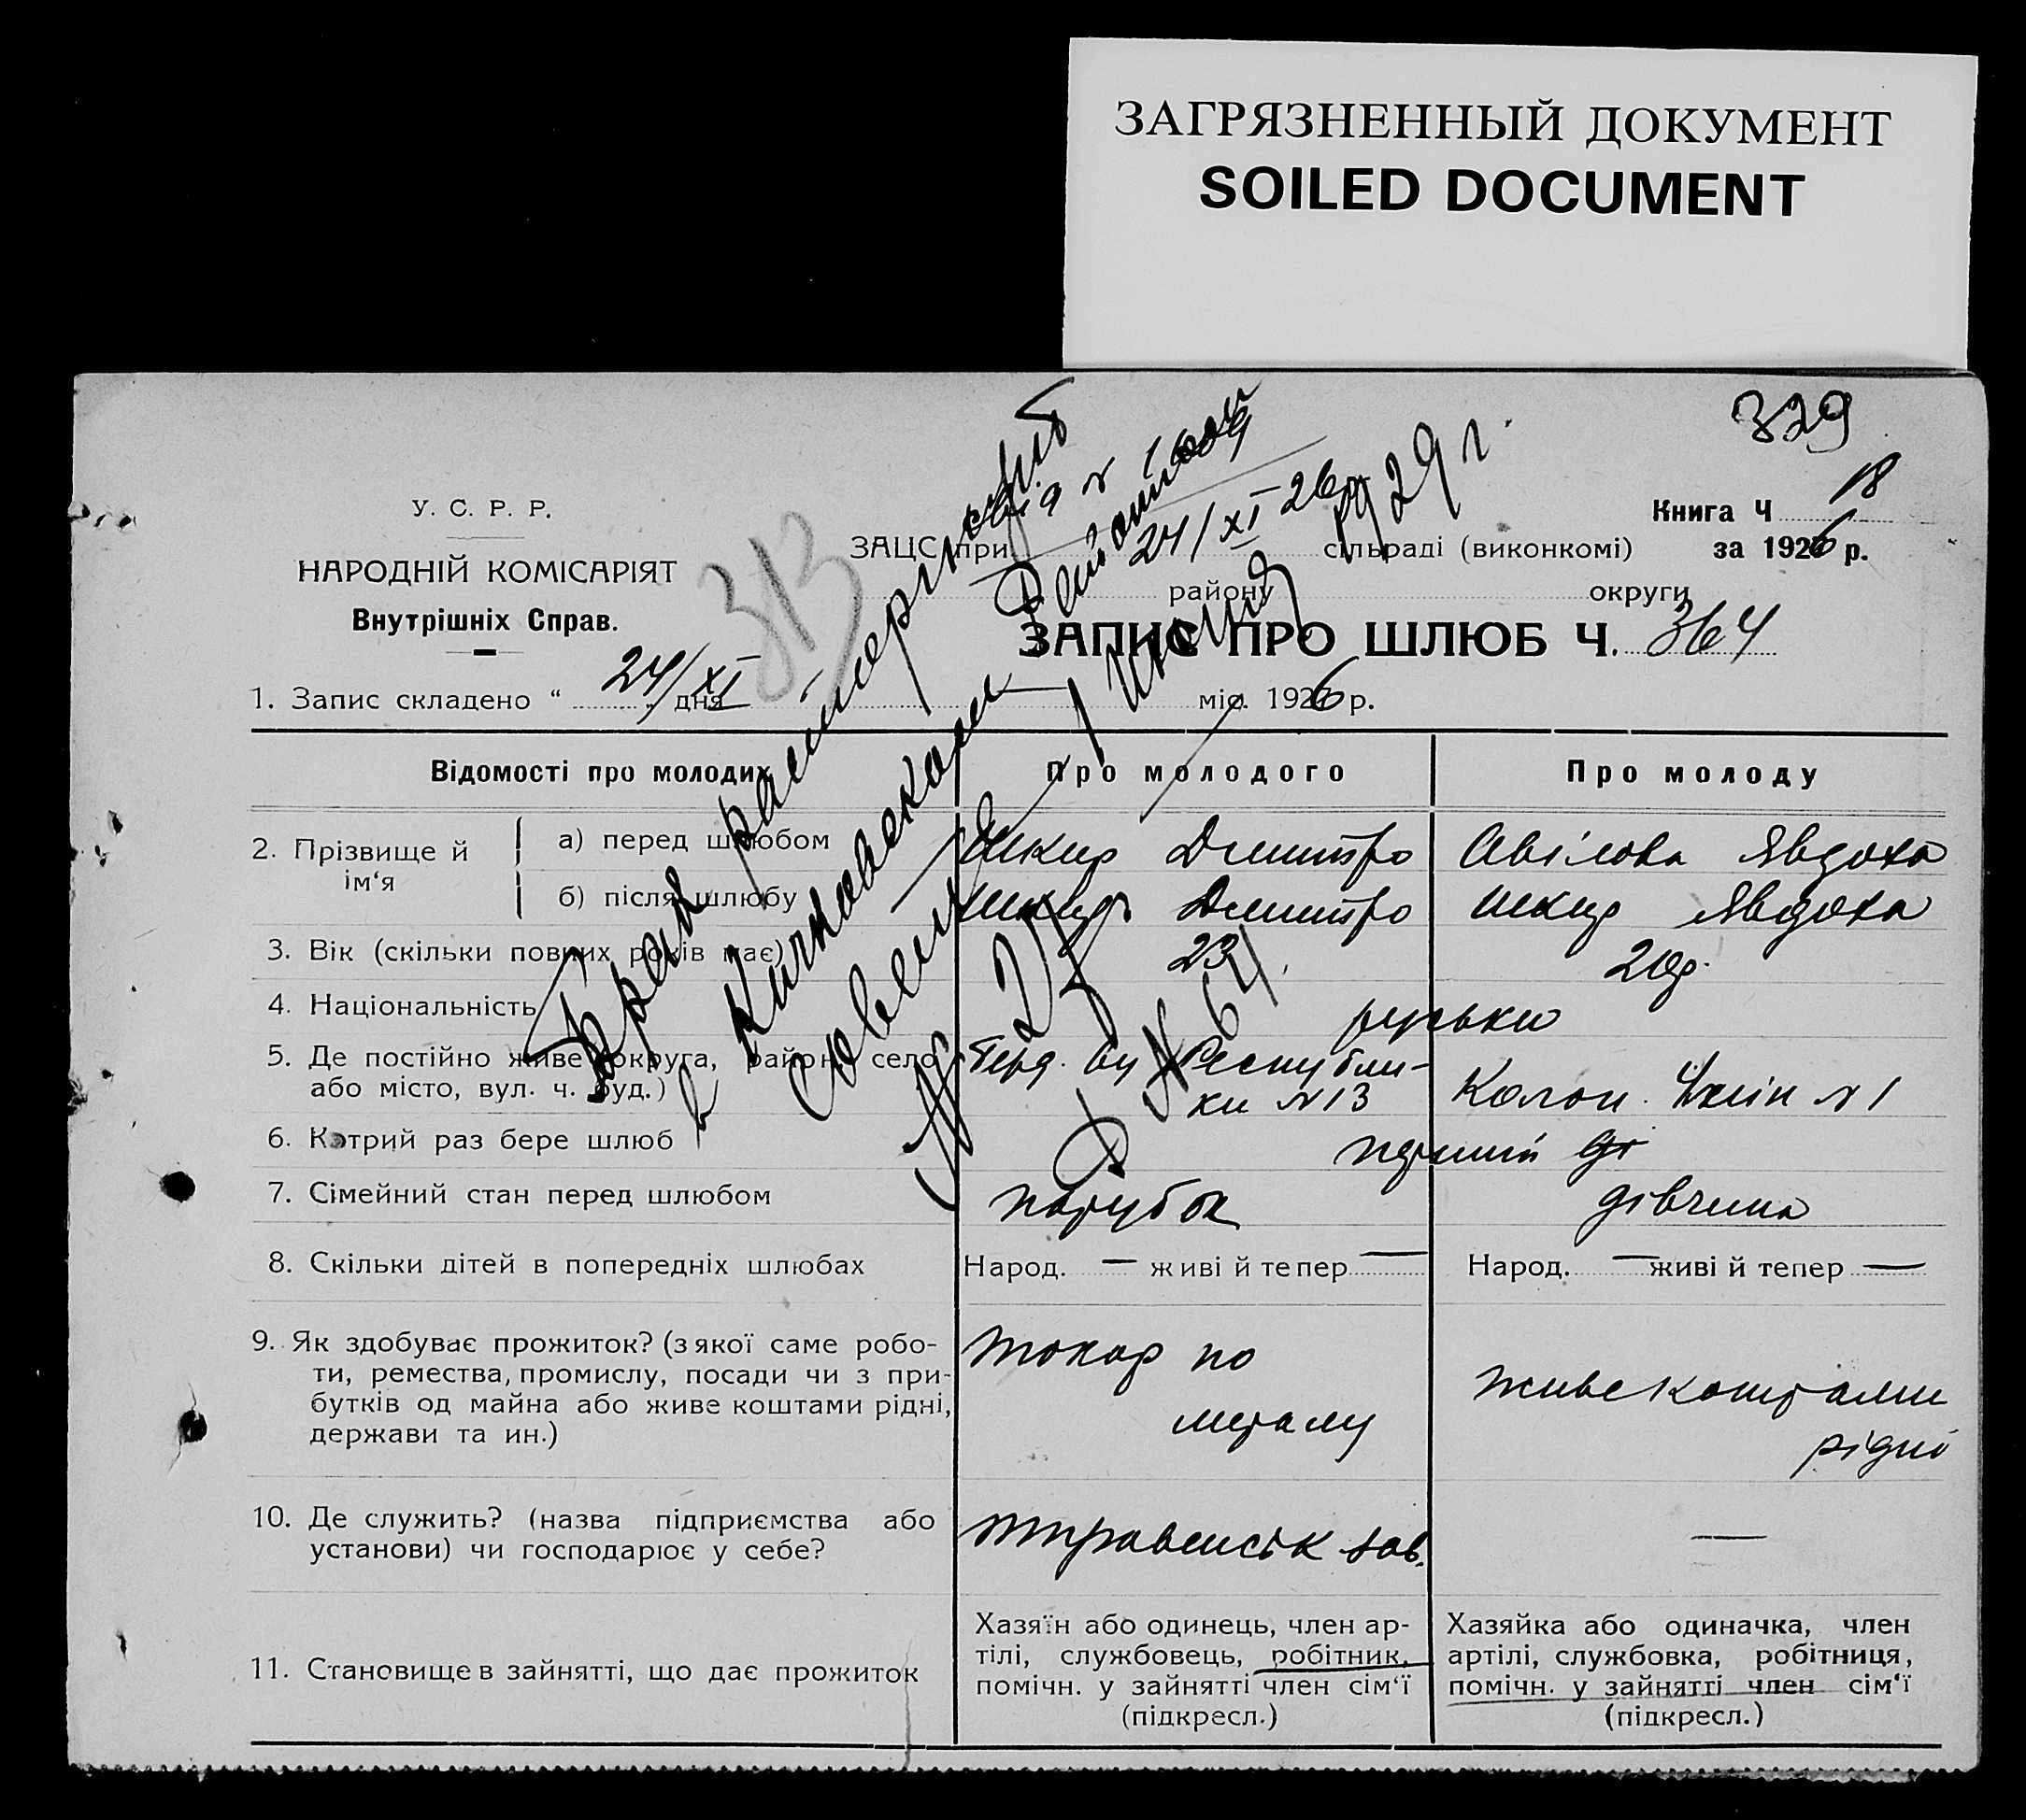 ЗАГРЯЗНЕННЫЙ ДОКУМЕНТ
SOILED DOCUMENT
329
У. С. Р. Р.
НАРОДНІЙ КОМІСАРІЯТ
Внутрішніх Справ.
313
Книга Ч 18
за 1926 р.
ЗАЦС при сільраді (виконкомі)
району округи
24/XI 26
ЗАПИС ПРО ШЛЮБ Ч. 364
1. Запис складено “ 24/XI „ дня міс. 1926 р.
Брак расторгнут
в
Совете
1929 г.
№ 64
Відомості про молодих
Про молодого
Про молоду
2. Прізвище й ім‘я
а) перед шлюбом
Шкир Дмитро
Авілова Явдоха
б) після шлюбу
Шкир Дмитро
Шкир Явдоха
3. Вік (скільки повних років має)
23
20р.
4. Національність
руськи
5. Де постійно живе (округа, район, село
або місто, вул. ч. буд.)
Республи-
ки №13
Колон. №1
6. Котрий раз бере шлюб
перший
7. Сімейний стан перед шлюбом
парубок
дівчина
8. Скільки дітей в попередніх шлюбах
Народ. — живі й тепер —
Народ. — живі й тепер —
9. Як здобуває прожиток? (з якої саме робо-
ти, ремества, промислу, посади чи з при-
бутків од майна або живе коштами рідні,
держави та ин.)
токар по
металу
живе коштами
рідні
10. Де служить? (назва підприємства або
установи) чи господарює у себе?
зав.
—
11. Становище в зайнятті, що дає прожиток
Хазяїн або одинець, член ар-
тілі, службовець, робітник,
помічн. у зайнятті член сім‘ї
(підкресл.)
Хазяйка або одиначка, член
артілі, службовка, робітниця,
помічн. у зайнятті член сім‘ї
(підкресл.)